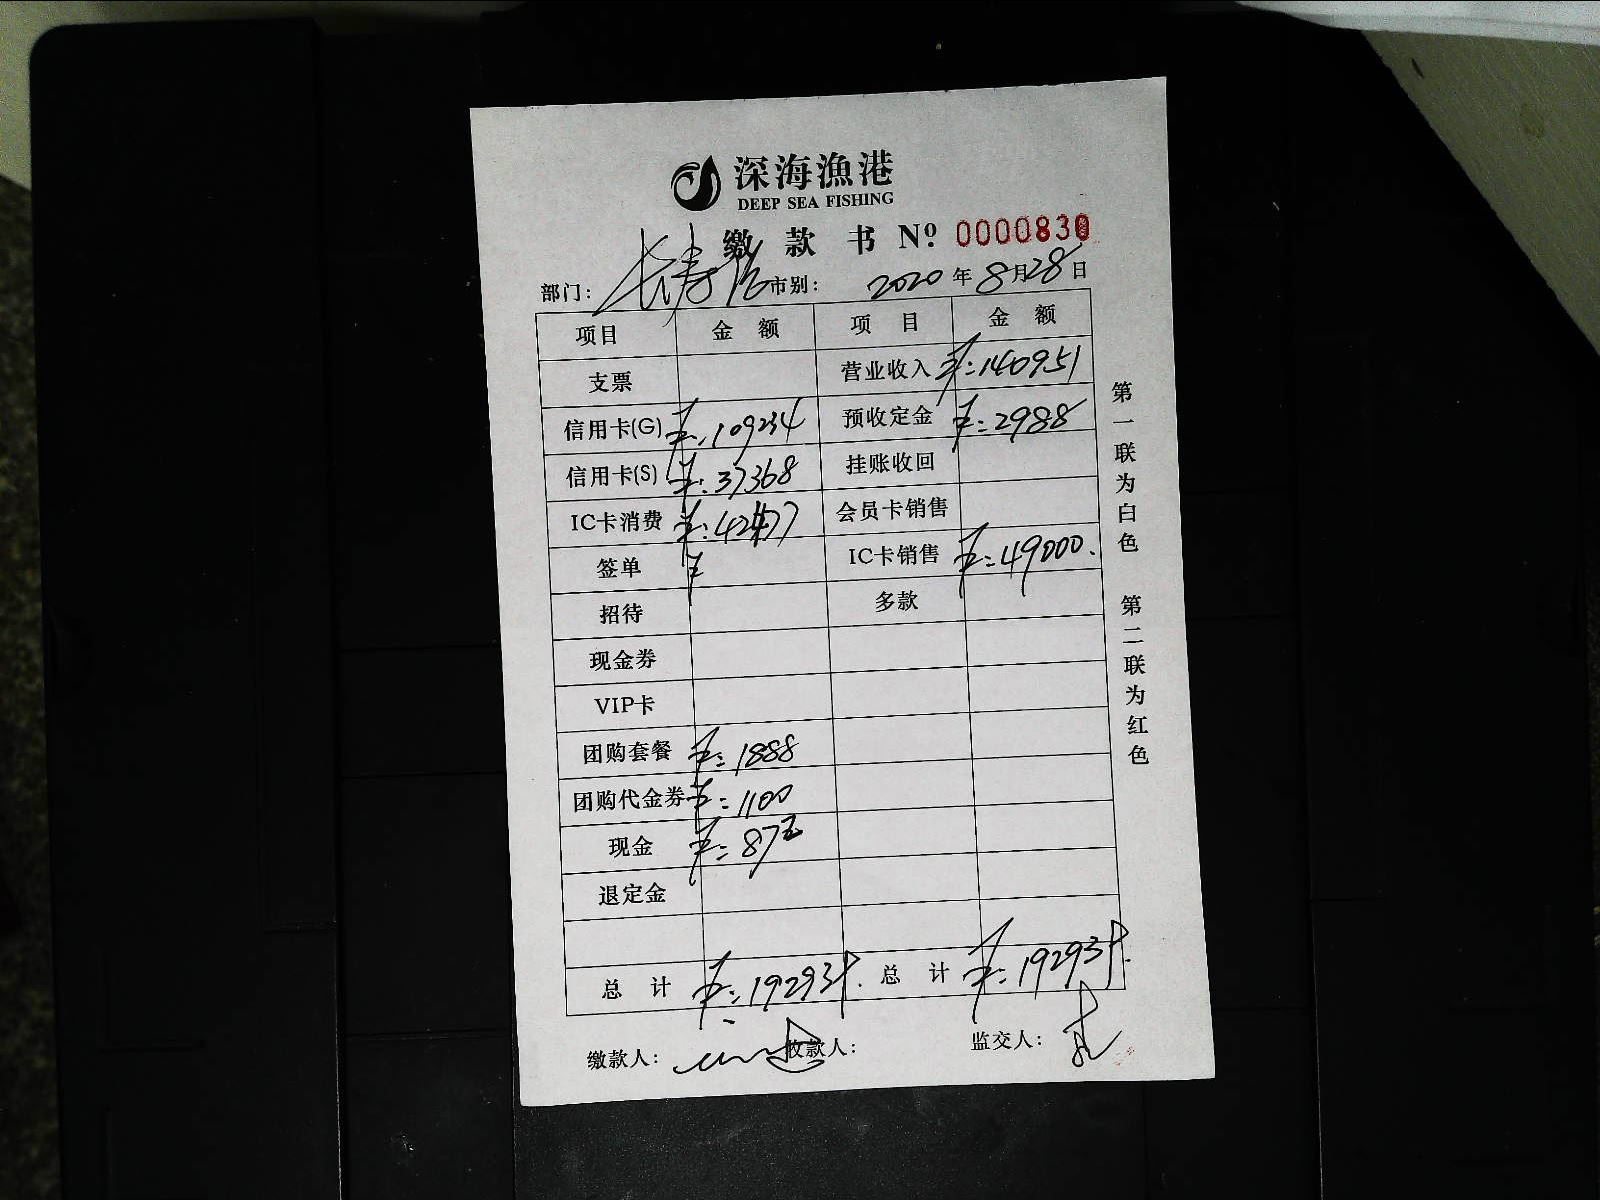 深海漁港
DEEP SEA FISHING
缴款书 Nº 0000830
部门: 长寿路 市别: 2020年8月28日
项目 金额 项目 金额
支票 营业收入 ¥:140951
信用卡(G) ¥:109234 预收定金 ¥:2988
信用卡(S) ¥:37368 挂账收回
IC卡消费 ¥:42477 会员卡销售
签单 ¥ IC卡销售 ¥:49000.
招待 多款
现金券
VIP卡
团购套餐 ¥:1888
团购代金券 ¥:1100
现金 ¥:872
退定金
总计 ¥:192939. 总计 ¥:192939.
缴款人: 收款人: 监交人:
第一联为白色 第二联为红色